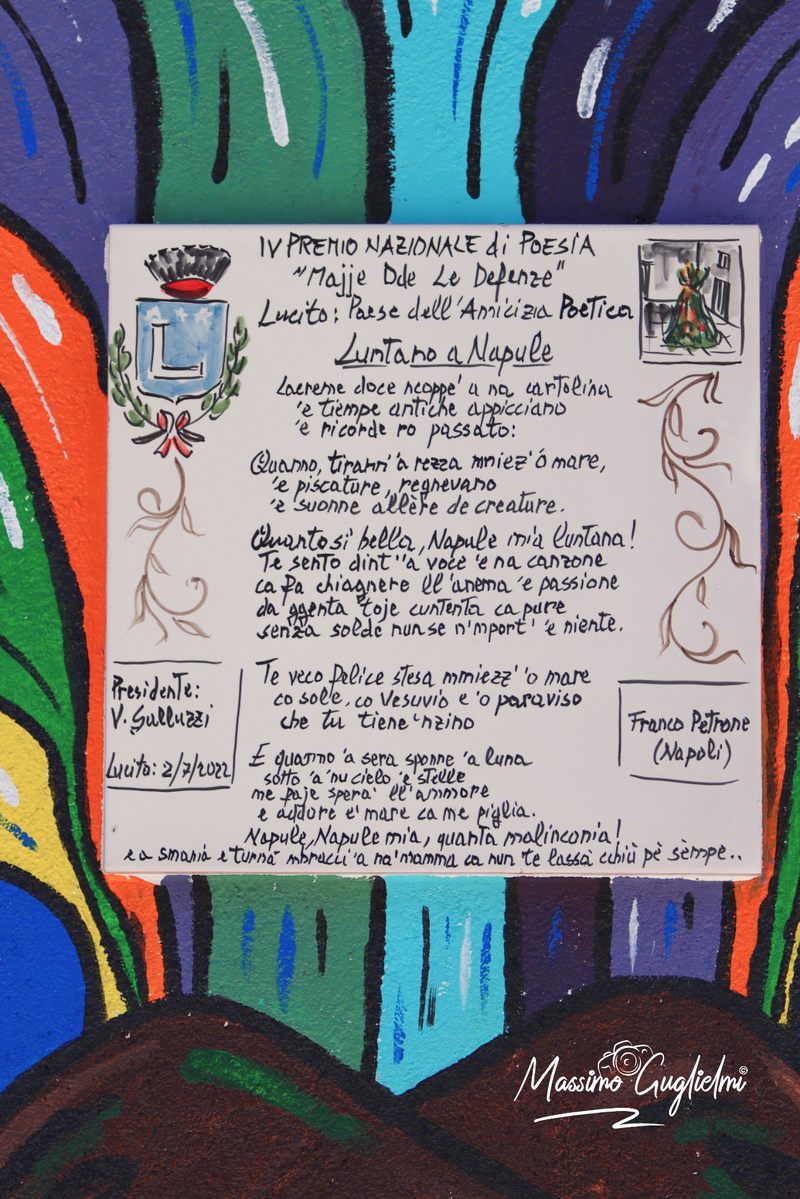 IV PREMIO NAZIONALE di POESIA
"Majje Dde Le Defenze"
Lucito: Paese dell'Amicizia Poetica
L
Luntano a Napule
Lacreme doce ncoppe' a na cartolina
'e tiempe antiche appicciano
'e ricorde ro passato:
Quanno, tirann' 'a rezza mniez' ó mare,
'e piscature, regnevano
'e suonne allère de creature.
Quanto si bella, Napule mia luntana!
Te sento dint' 'a voce 'e na canzone
ca fa chiagnere ll'anema 'e passione
da ggenta toje cuntenta ca pure
senza solde nun se n'mport' 'e niente.
Te veco felice stesa mmiezz' 'o mare
co sole, co Vesuvio e 'o paraviso
che tu tiene 'nzino
E quanno 'a sera sponne 'a luna
sotto 'a 'nu cielo 'e stelle
me faje spera' ll'ammore
e addore e' mare ca me piglia.
Napule, Napule mia, quanta malinconia!
e a smania e turnà mbracci 'a na' mamma ca nun te lassa cchiù pè sèmpe..
Presidente:
V. Galluzzi
Lucito: 2/7/2022
Franco Petrone
(Napoli)
Massimo Guglielmi ©